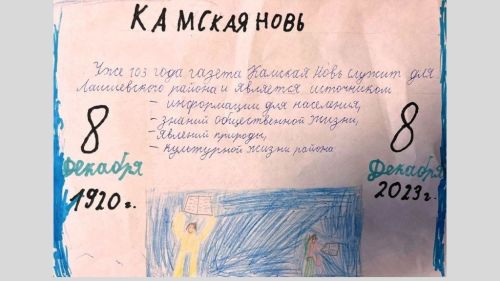 КАМСКАЯ НОВЬ
Уже 103 года газета Камская Новь служит для
Лаишевского района и является источником
- информации для населения,
- знаний общественной жизни,
- явлений природы,
- культурной жизни района
8
Декабря
1920 г.
8
Декабря
2023 г.